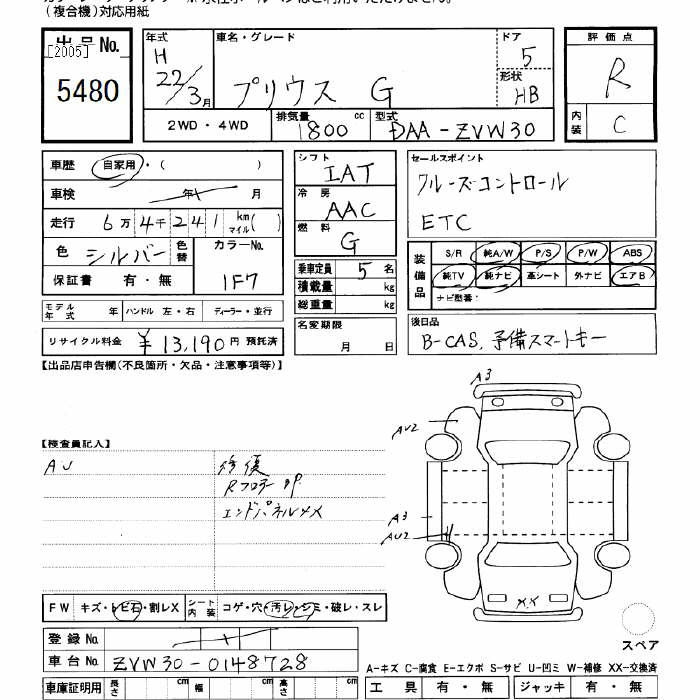 (複合機)対応用紙
出品No.
[2005]
5480
年式
H
22/3月
車名・グレード
プリウス G
ドア
5
形状
HB
2WD・4WD
排気量
1800 cc
型式
DAA-ZVW30
評価点
R
内装
C
車歴 自家用・( )
車検 年 月
走行 6万4千241 km マイル( )
色 シルバー 色替
カラーNo.
1F7
保証書 有・無
シフト
IAT
冷房
AAC
燃料
G
乗車定員 5 名
積載量 kg
総重量 kg
セールスポイント
クルーズコントロール
ETC
装備品
S/R 純A/W P/S P/W ABS
純TV 純ナビ 革シート 外ナビ エアB
ナビ型番:
モデル年式 年 ハンドル 左・右 ディーラー・並行
リサイクル料金 ¥13,190円 預託済
名変期限
月 日
後日品
B-CAS, 予備スマートキー
【出品店申告欄(不良箇所・欠品・注意事項等)】
【検査員記入】
AU
修復
Rフロアー
エンドパネルXX
A3
AU2
A3
AU2
XX
FW キズ・トビ石・割レX シート内装 コゲ・穴・汚レ・シミ・破レ・スレ
登録No.
車台No. ZVW30-0148728
スペア
A-キズ C-腐食 E-エクボ S-サビ U-凹ミ W-補修 XX-交換済
車庫証明用 長さ cm 幅 cm 高さ cm
工具 有・無 ジャッキ 有・無